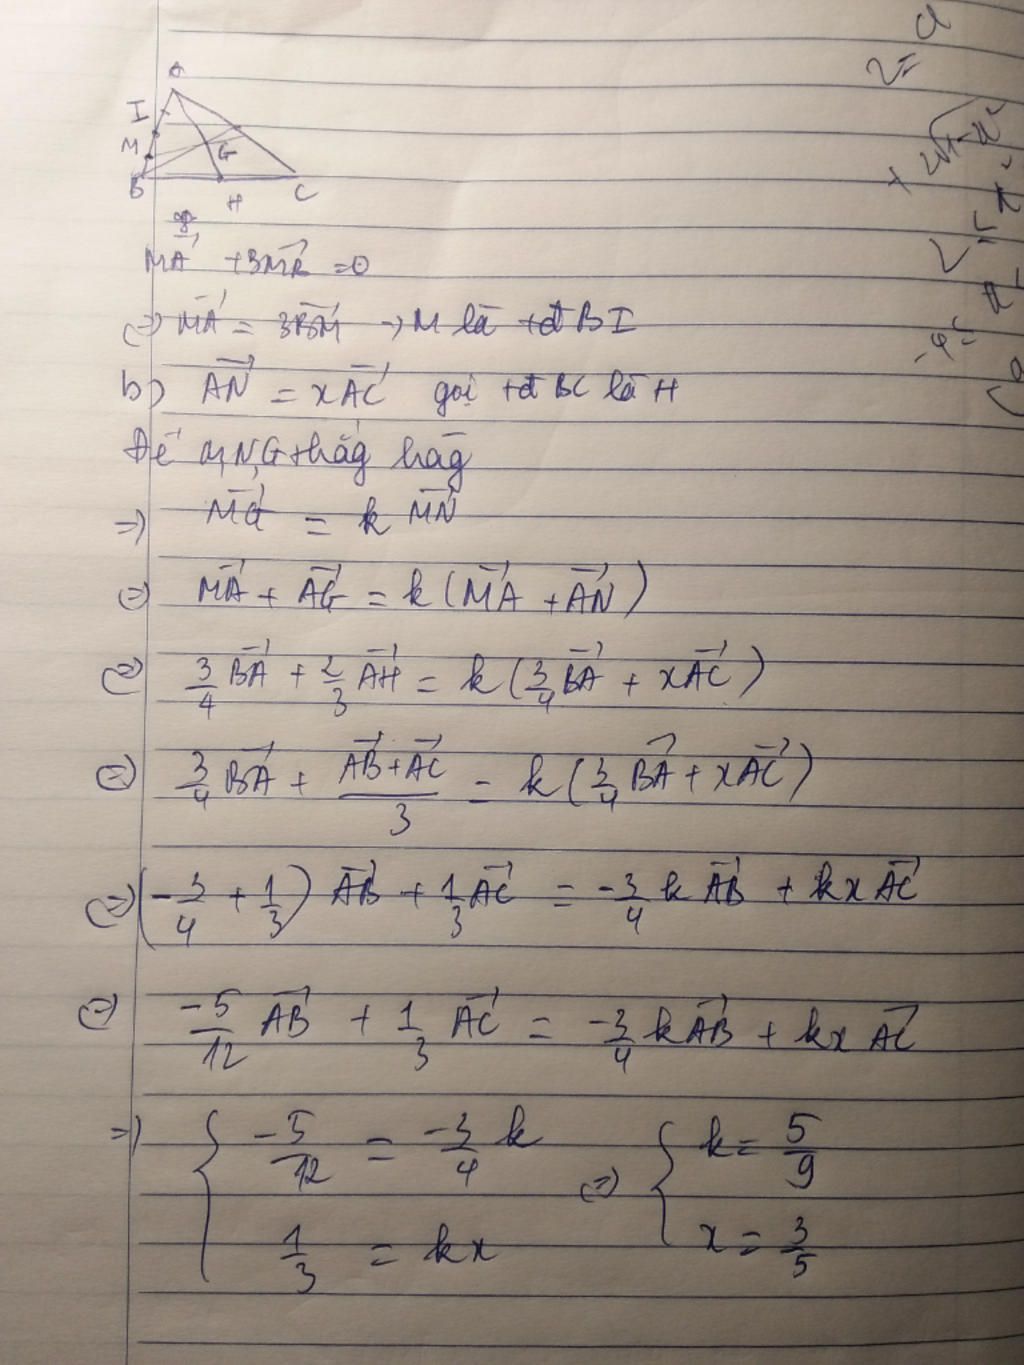 A
I
M
G
B
H
C
MA + 3MB = 0
(=) MA = 3BM → M là tđ BI
b) AN = xAC gọi tđ BC là H
Để M,N,G thẳg hàg
=) MG = k MN
(=) MA + AG = k(MA + AN)
(=) 3/4 BA + 2/3 AH = k(3/4 BA + xAC)
(=) 3/4 BA + (AB + AC)/3 = k(3/4 BA + xAC)
(=) (-3/4 + 1/3) AB + 1/3 AC = -3/4 k AB + kx AC
(=) -5/12 AB + 1/3 AC = -3/4 k AB + kx AC
=) { -5/12 = -3/4 k (=) { k = 5/9
1/3 = kx x = 3/5